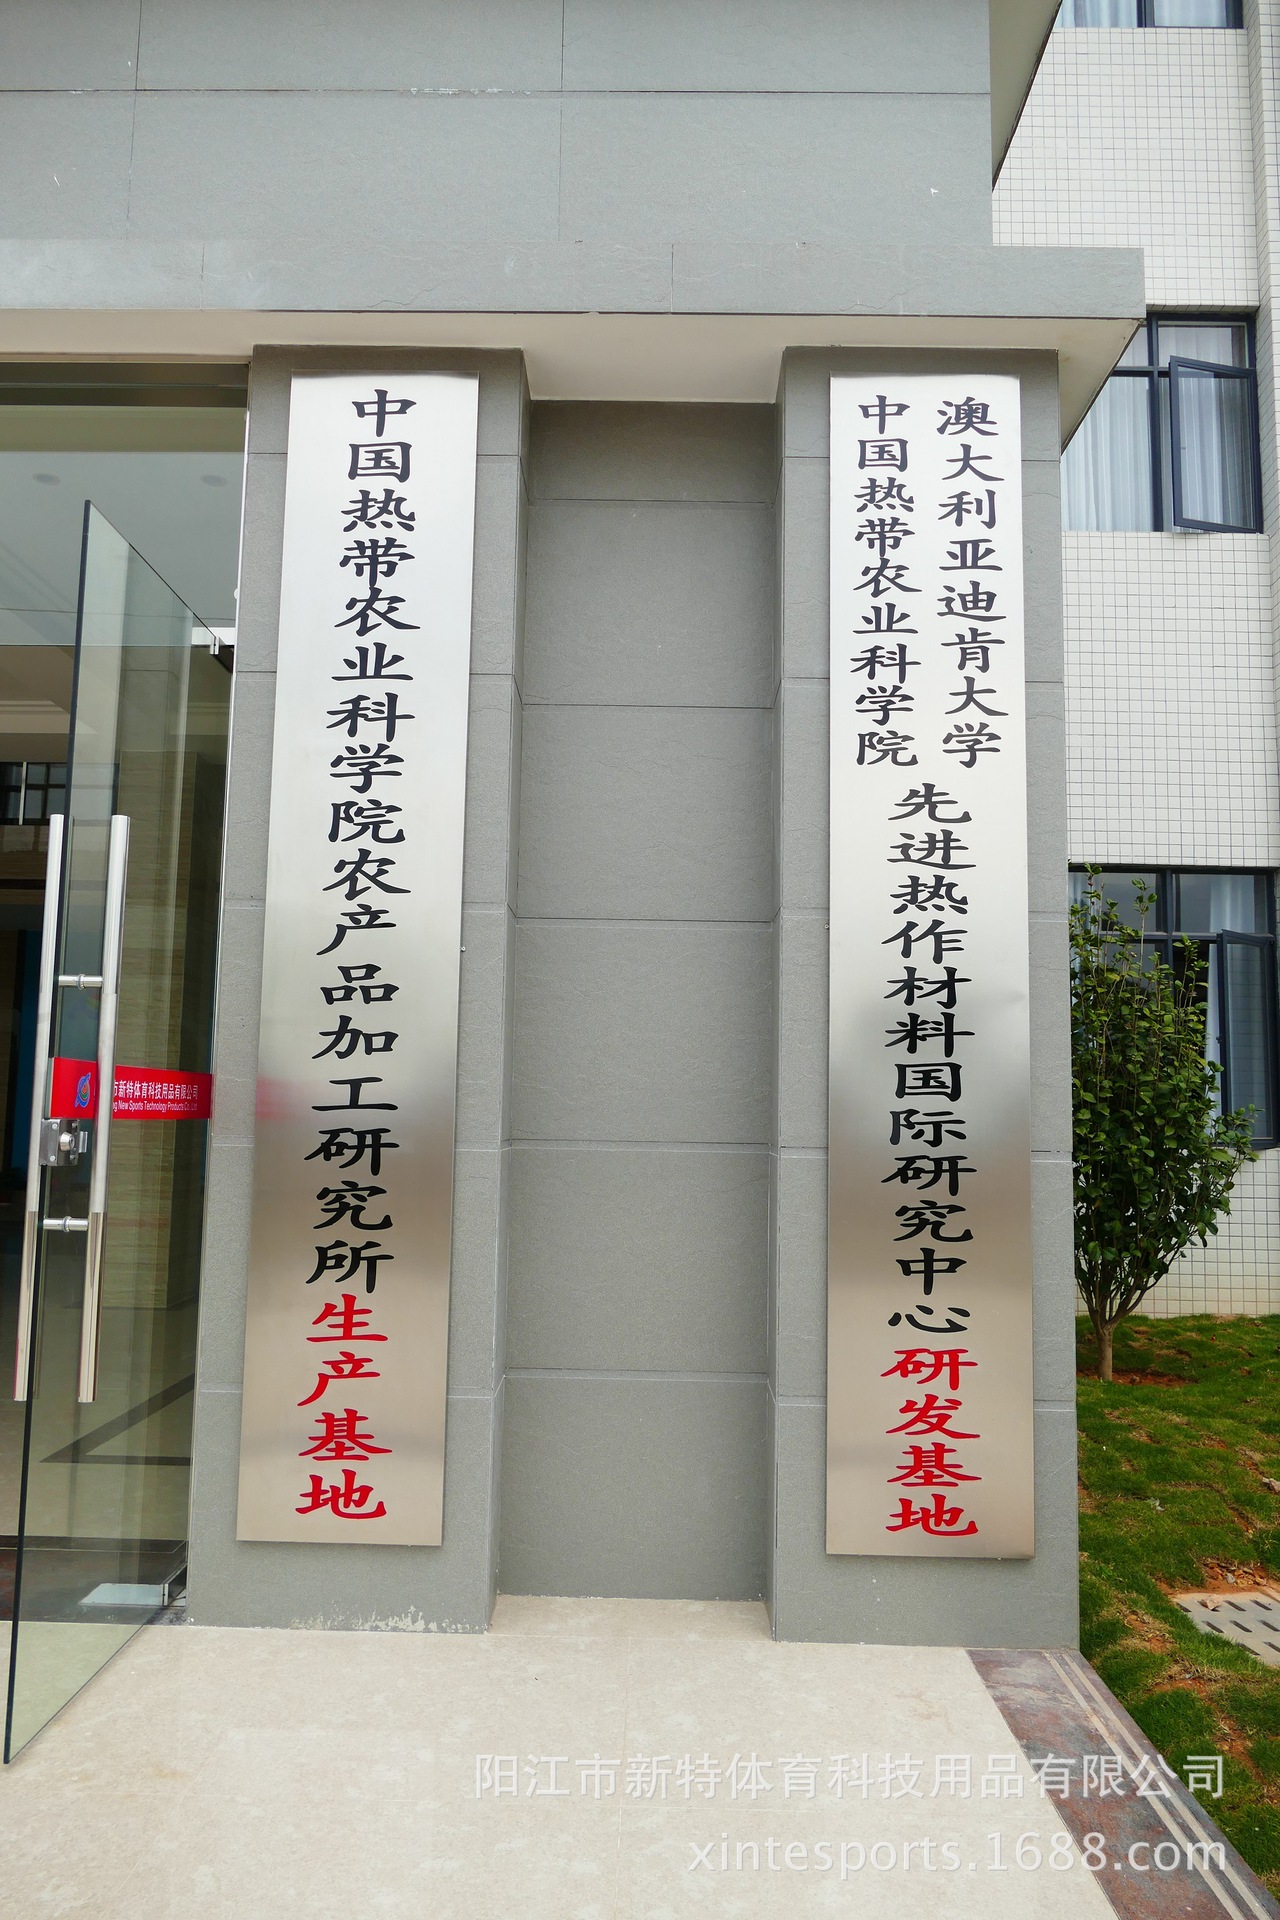 中国热带农业科学院农产品加工研究所生产基地
澳大利亚迪肯大学
中国热带农业科学院
先进热作材料国际研究中心研发基地
市新特体育科技用品有限公司
ng New Sports Technology Products Co.,Ltd
阳江市新特体育科技用品有限公司
xintesports.1688.com